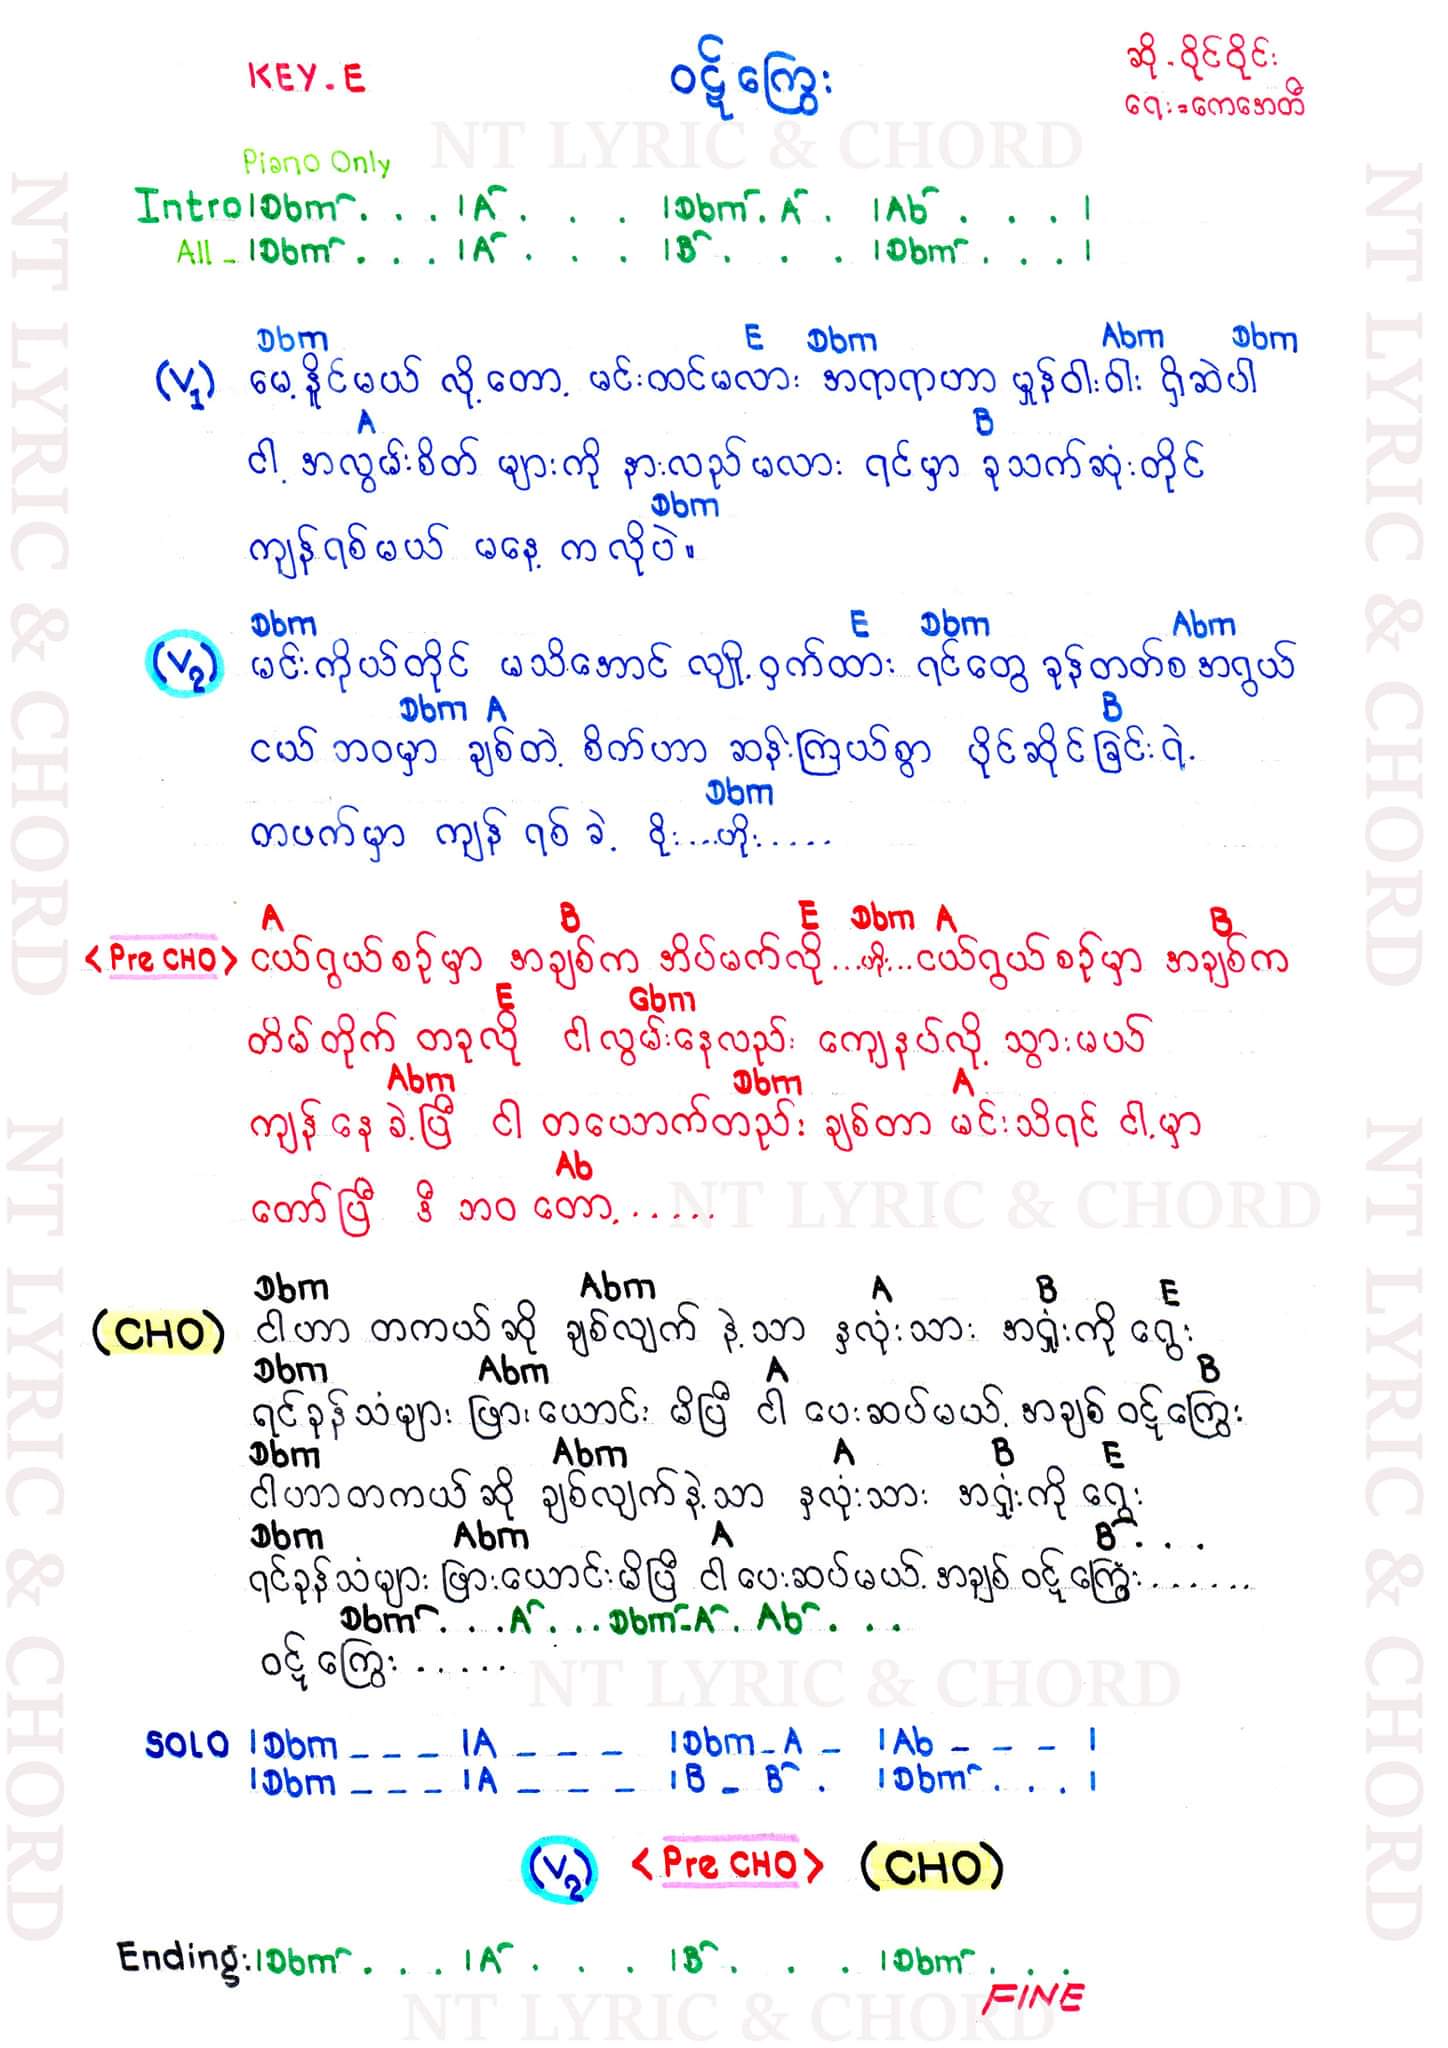 KEY.E
ဝဋ်ကြွေး
ဆို - ဝိုင်ဝိုင်း
ရေး = ကေအေတီ
NT LYRIC & CHORD
Piano Only
Intro |Dbm⌒ . . . |A⌒ . . . |Dbm⌒ . A⌒ . |Ab⌒ . . . |
All - |Dbm⌒ . . . |A⌒ . . . |B⌒ . . . |Dbm⌒ . . . |
Dbm E Dbm Abm Dbm
(V1) မေ့နိုင်မယ် လို့တော့ မင်းထင်မလား အရာရာဟာ မှုန်ဝါးဝါး ရှိဆဲပါ
A B
ငါ့ အလွမ်းစိတ် များကို နားလည်မလား ရင်မှာ ခုသက်ဆုံးတိုင်
Dbm
ကျန်ရစ်မယ် မနေ့ ကလိုပဲ။
Dbm E Dbm Abm
(V2) မင်းကိုယ်တိုင် မသိအောင် လျှို့ဝှက်ထား ရင်တွေ ခုန်တတ်စ အရွယ်
Dbm A B
ငယ် ဘဝမှာ ချစ်တဲ့ စိတ်ဟာ ဆန်းကြယ်စွာ ပိုင်ဆိုင်ခြင်းရဲ့
Dbm
တဖက်မှာ ကျန် ရစ် ခဲ့ ဝိုး....ဟိုး.....
A B E Dbm A B
<Pre CHO> ငယ်ရွယ်စဉ်မှာ အချစ်က အိပ်မက်လို ...ဟိုး... ငယ်ရွယ်စဉ်မှာ အချစ်က
E Gbm
တိမ်တိုက် တခုလို ငါလွမ်းနေလည်း ကျေနပ်လို့ သွားမယ်
Abm Dbm A
ကျန်နေခဲ့ပြီ ငါ တယောက်တည်း ချစ်တာ မင်းသိရင် ငါ့မှာ
Ab
တော်ပြီ ဒီ ဘဝ တော့......
NT LYRIC & CHORD
Dbm Abm A B E
(CHO) ငါဟာ တကယ်ဆို ချစ်လျက် နဲ့သာ နှလုံးသား အရှုံးကို ရွေး
Dbm Abm A B
ရင်ခုန်သံများ ဖြားယောင်း မိပြီ ငါ ပေးဆပ်မယ့် အချစ် ဝဋ်ကြွေး
Dbm Abm A B E
ငါဟာတကယ်ဆို ချစ်လျက်နဲ့သာ နှလုံးသား အရှုံးကို ရွေး
Dbm Abm A B⌒ . . .
ရင်ခုန်သံများ ဖြားယောင်းမိပြီ ငါပေးဆပ်မယ့် အချစ် ဝဋ်ကြွေး.......
Dbm⌒ . . . A⌒ . . . Dbm⌒-A⌒ . Ab⌒ . . .
ဝဋ်ကြွေး ......
NT LYRIC & CHORD
SOLO |Dbm _ _ _ |A _ _ _ |Dbm _ A _ |Ab _ _ _ |
|Dbm _ _ _ |A _ _ _ |B _ B⌒ . |Dbm⌒ . . . |
(V2) <Pre CHO> (CHO)
Ending: |Dbm⌒ . . . |A⌒ . . . |B⌒ . . . |Dbm⌒ . . .
FINE
NT LYRIC & CHORD
NT LYRIC & CHORD
NT LYRIC & CHORD
NT LYRIC & CHORD
NT LYRIC & CHORD